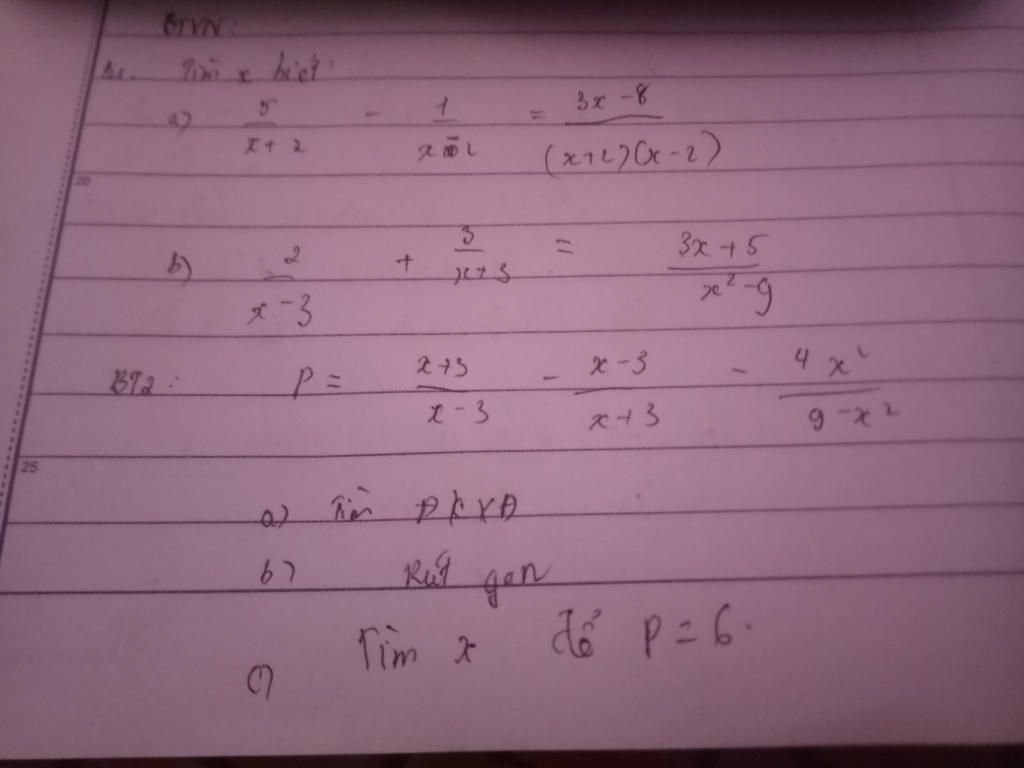 BTVN:
B1: Tìm x biết:
a) 5/(x+2) - 1/(x-2) = (3x-8)/((x+2)(x-2))
20
b) 2/(x-3) + 3/(x+3) = (3x+5)/(x²-9)
BT2: P = (x+3)/(x-3) - (x-3)/(x+3) - 4x²/(9-x²)
25
a) Tìm ĐKXĐ
b) Rút gọn
c) Tìm x để P = 6.